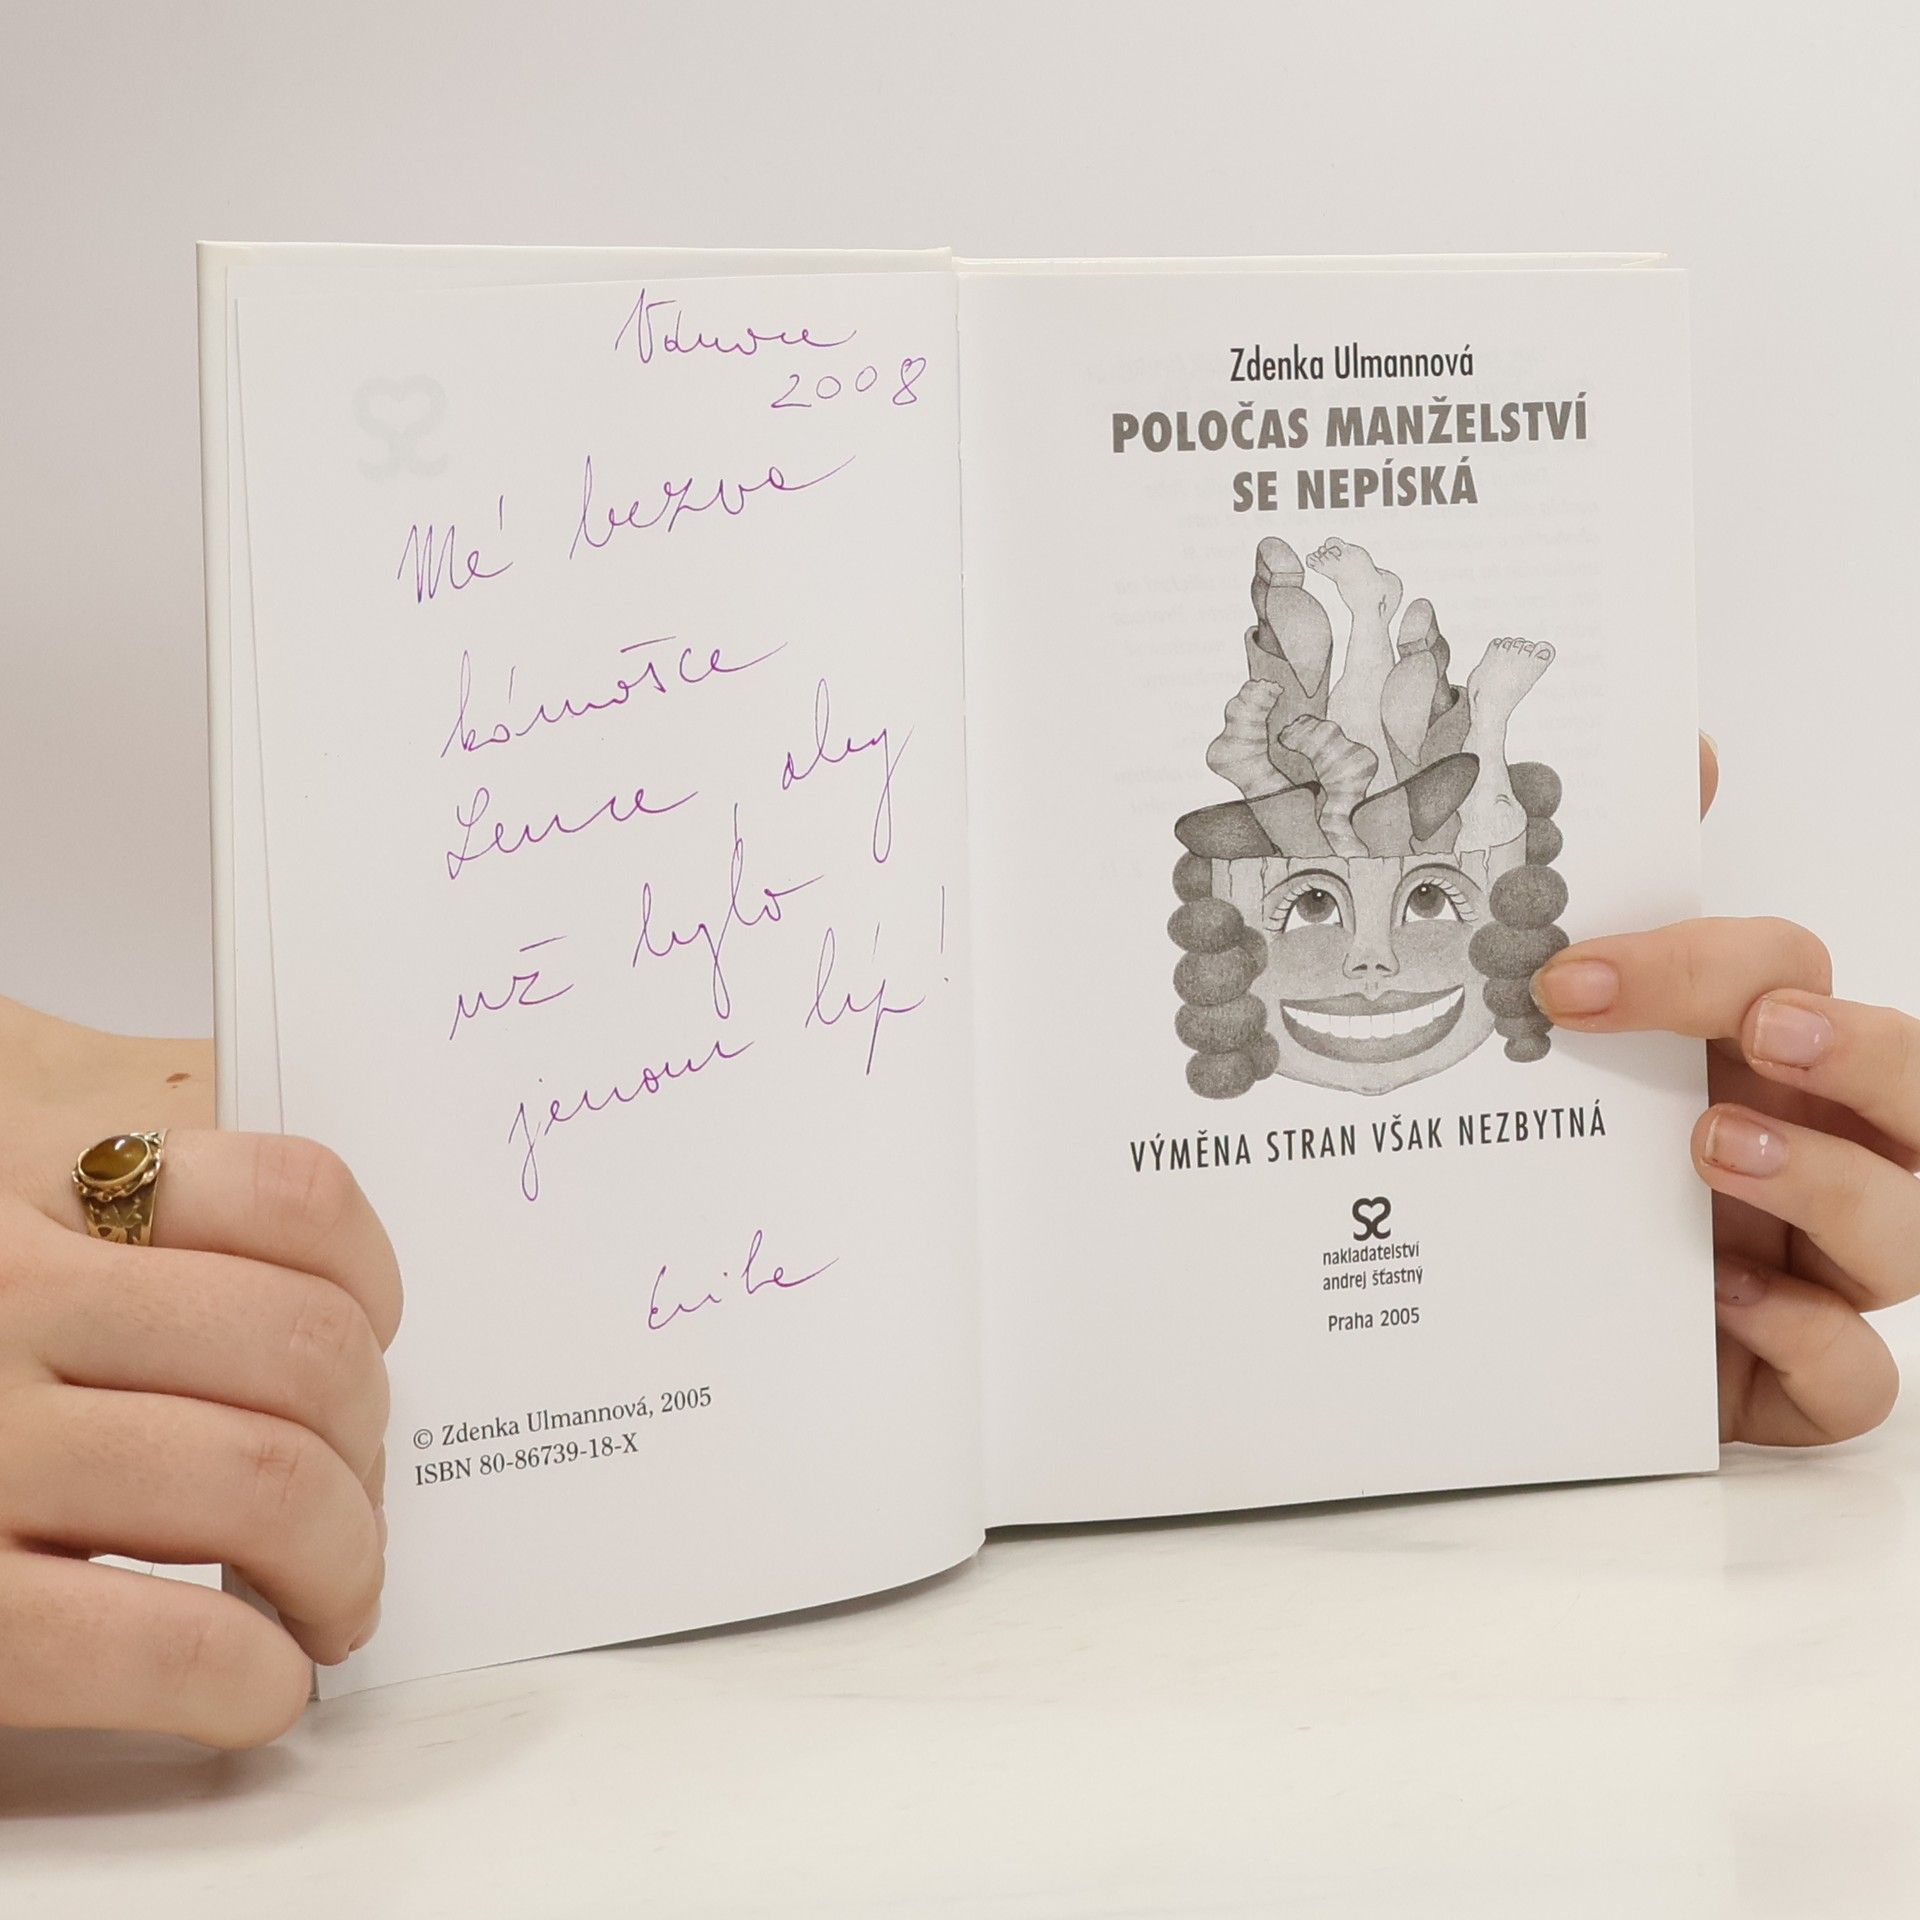 Vánoce
2008
Mé bezva
kámošce
Lence, aby
už bylo
jenom líp!
© Zdenka Ulmannová, 2005
ISBN 80-86739-18-X
Zdenka Ulmannová
POLOČAS MANŽELSTVÍ
SE NEPÍSKÁ
VÝMĚNA STRAN VŠAK NEZBYTNÁ
nakladatelství
andrej šťastný
Praha 2005